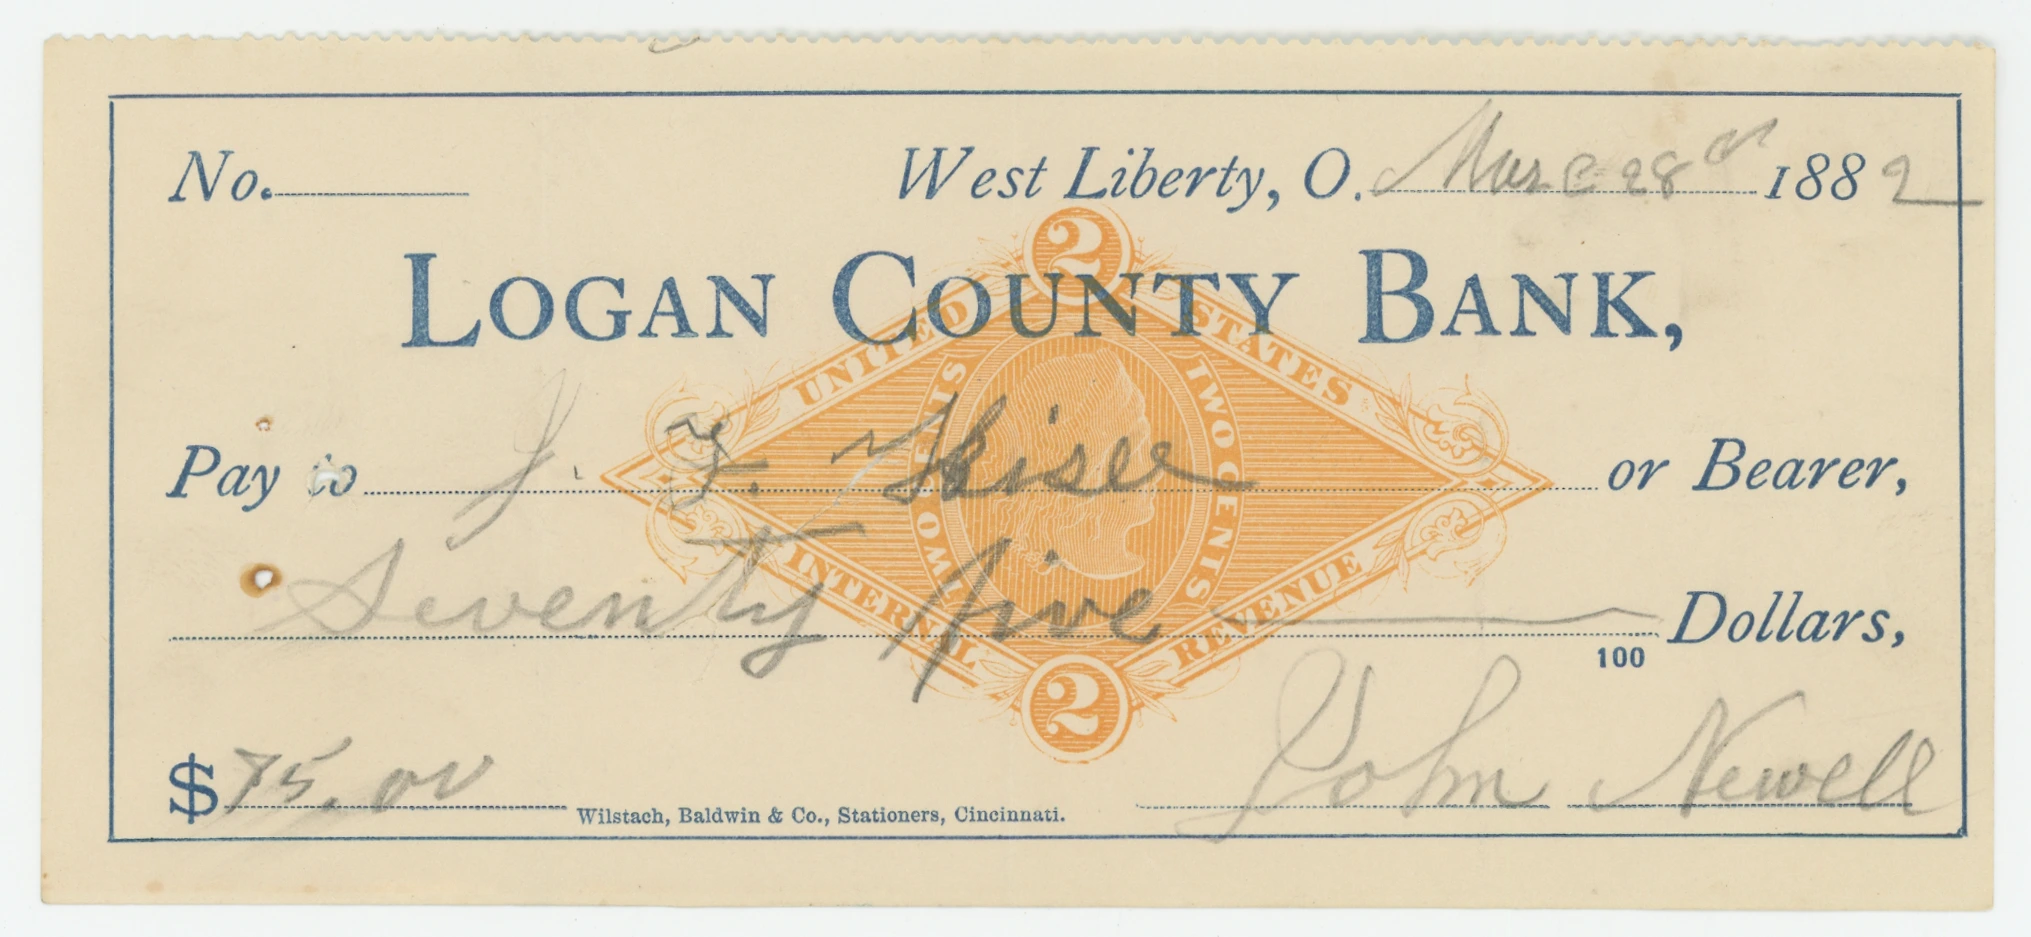 No.
West Liberty, O. Marc 28th 1882
2
LOGAN COUNTY BANK,
UNITED STATES
TWO CENTS TWO CENTS
Pay to J. F. or Bearer,
INTERNAL REVENUE
Seventy Five Dollars,
100
2
$75.00
John Newell
Wilstach, Baldwin & Co., Stationers, Cincinnati.